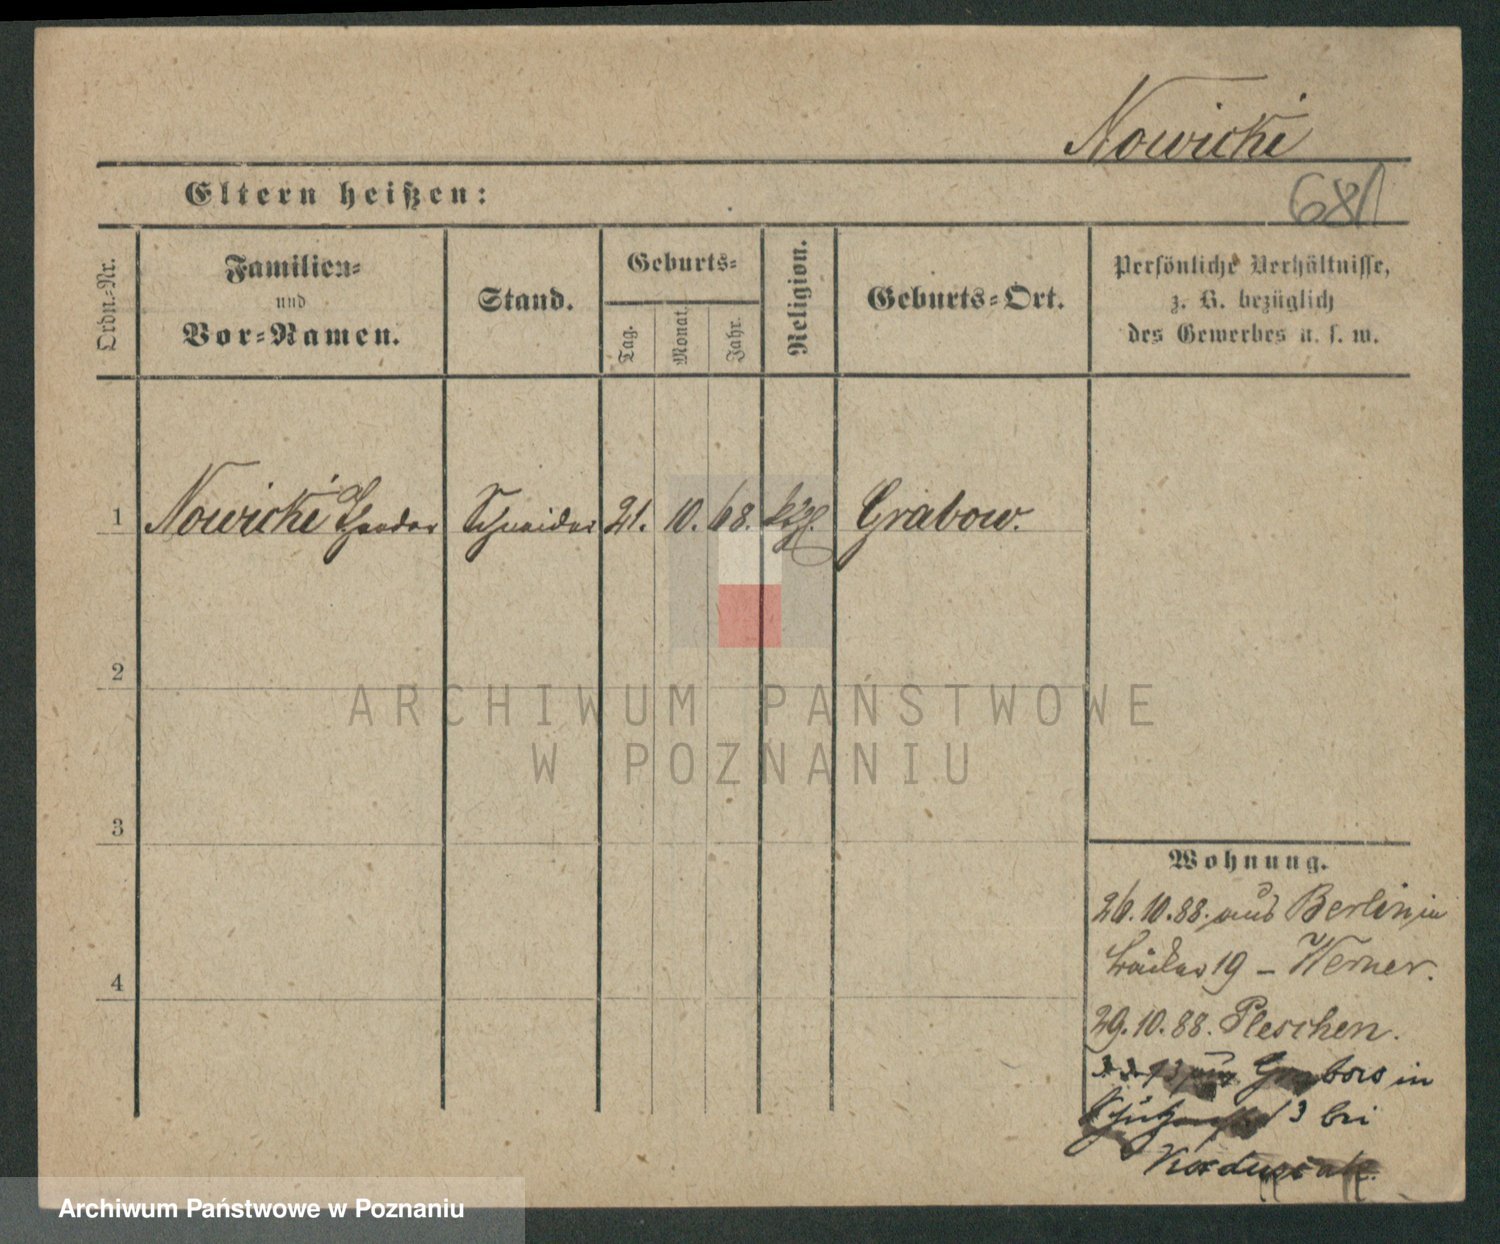 Nowicki
Eltern heißen:
681
Ordn.-Nr.
Familien-
und
Vor-Namen.
Stand.
Geburts-
Tag.
Monat.
Jahr.
Religion.
Geburts-Ort.
Persönliche Verhältnisse,
z. B. bezüglich
des Gewerbes u. s. w.
1 Nowicki Theodor Schneider 21. 10. 68. kgl. Grabow.
2
3
4
ARCHIWUM PAŃSTWOWE
W POZNANIU
Wohnung.
26.10.88. aus Berlin in
19 – Werner.
29.10.88. Pleschen.
Grabow in
13 bei
Archiwum Państwowe w Poznaniu